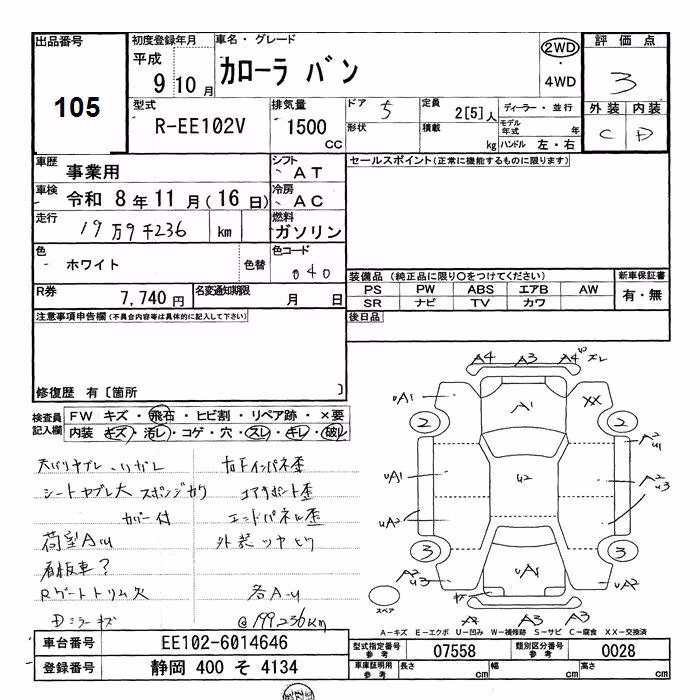 出品番号
105
初度登録年月
平成
9年10月
車名・グレード
カローラ バン
2WD
・
4WD
評価点
3
型式
R-EE102V
排気量
1500
CC
ドア 5
形状
定員 2[5]人
積載 kg
ディーラー・並行
モデル年式 年
ハンドル 左・右
外装 内装
C D
車歴 事業用
シフト AT
セールスポイント(正常に機能するものに限ります)
車検 令和 8年11月(16日)
冷房 AC
走行 19万9千236 km
燃料 ガソリン
色 ホワイト 色替
色コード 040
装備品(純正品に限り○をつけてください)
新車保証書
PS PW ABS エアB AW
有・無
SR ナビ TV カワ
R券 7,740円
名変通知期限 月 日
後日品
注意事項申告欄(不具合内容等は具体的に記入して下さい)
修復歴 有〔箇所 〕
検査員記入欄
FW キズ・飛石・ヒビ割・リペア跡・×要
内装 キズ・汚レ・コゲ・穴・スレ・キレ・破レ
天バリヤブレ・
シートヤブレ大 スポンジカケ
カバー付
荷室AU
看板車?
Rゲートトリム欠
Dミラーキズ
右Fインパネ歪
コアサポート歪
エンドパネル歪
外装ツヤヒケ
各A-U
@199236km
A4 A3 A4
UA1 A1 XX
2 2
UA1 U2
UA2
3 3
UA1 UA2
A3 A3
スペア
A-キズ E-エクボ U-凹み W-補修跡 S-サビ C-腐食 XX-交換済
車台番号 EE102-6014646
型式指定番号 参考 07558
類別区分番号 参考 0028
登録番号 静岡 400 そ 4134
車庫証明用 参考 長さ cm 幅 cm 高さ cm